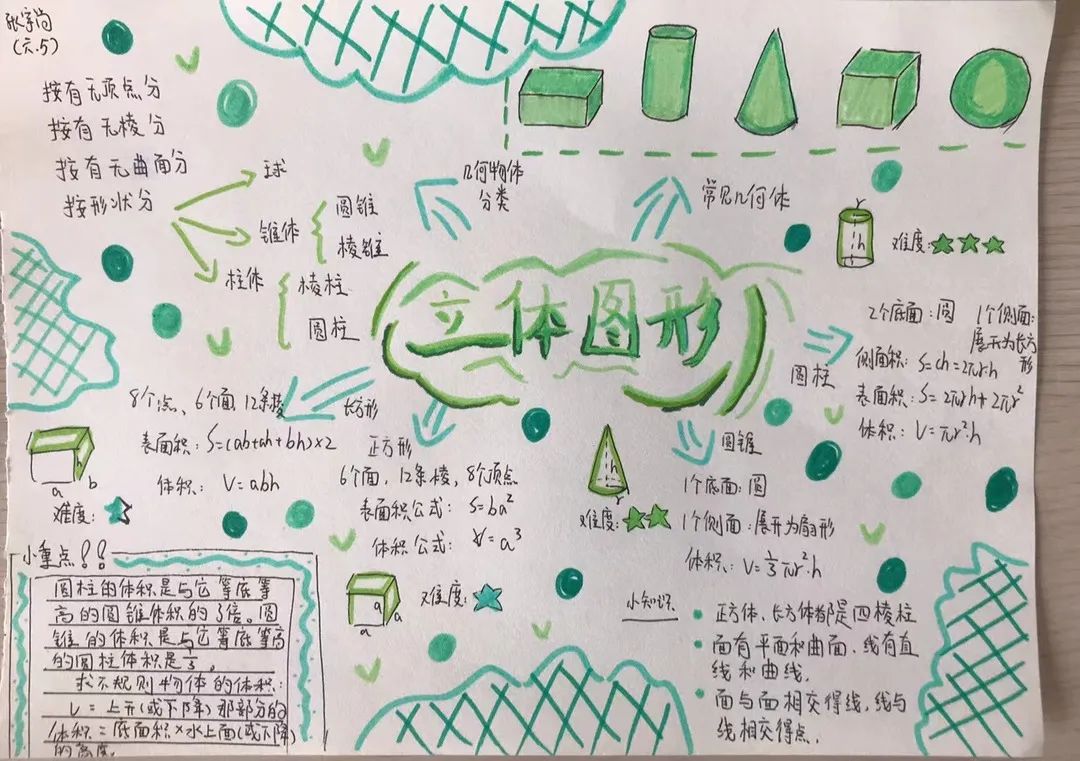 张宇尚
(六.5)
按有无顶点分
按有无棱分
按有无曲面分
按形状分
球
锥体
圆锥
棱锥
柱体
棱柱
圆柱
几何物体
分类
常见几何体
立体图形
r
h
难度:★★★
圆柱
2个底面:圆
1个侧面:
展开为长方
形
侧面积:S=ch=2πr·h
表面积:S=2πrh+2πr²
体积:V=πr²·h
长方形
8个点、6个面,12条棱
表面积:S=(ab+ah+bh)×2
体积:V=abh
h
a
b
难度:★
正方形
6个面,12条棱,8个顶点
表面积公式:S=6a²
体积公式:V=a³
a
a
a
难度:★
圆锥
1个底面:圆
1个侧面:展开为扇形
体积:V=1/3πr²·h
h
r
难度:★★
小重点!!
圆柱的体积是与它等底等
高的圆锥体积的3倍。圆
锥的体积是与它等底等高
的圆柱体积是1/3。
求不规则物体的体积:
V=上升(或下降)那部分的
体积=底面积×水上面(或下降)
的高度.
小知识
•正方体、长方体都是四棱柱
•面有平面和曲面、线有直
线和曲线.
•面与面相交得线,线与
线相交得点.